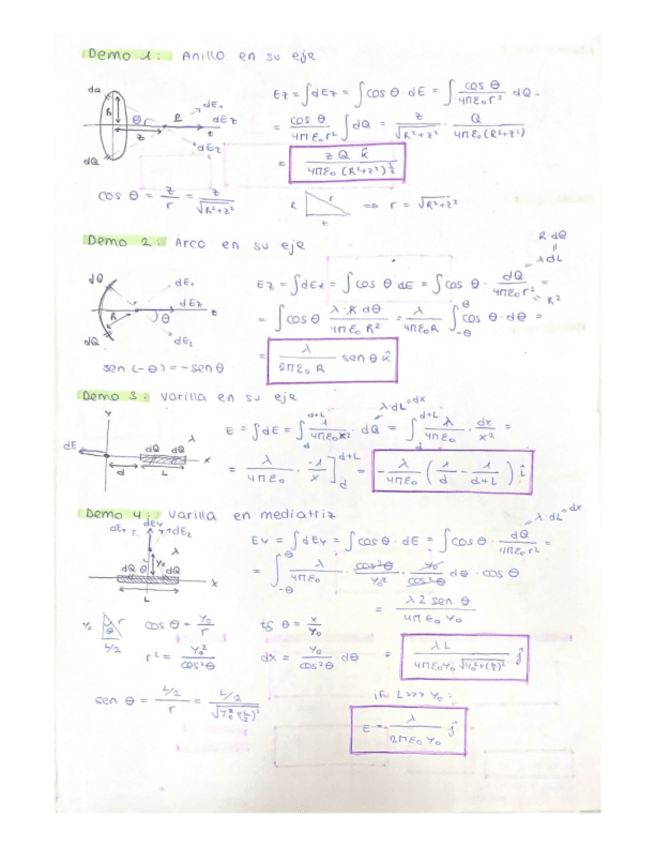 Demo 1: Anillo en su eje
dQ
R
θ r P dE₁
dEz
z
z
dE₂
dQ
Ez = ∫dEz = ∫cos θ · dE = ∫ cos θ / 4πε₀r² dQ =
= cos θ / 4πε₀r² ∫dQ = z / √R²+z² · Q / 4πε₀(R²+z²)
= z Q k̂ / 4πε₀ (R²+z²)^3/2
cos θ = z/r = z / √R²+z²
R r z ⇒ r = √R²+z²
Demo 2: Arco en su eje
dQ
dE₁
dEz
z
R θ
dE₂
dQ
R dθ
=
λ dL
Ez = ∫dEz = ∫cos θ dE = ∫cos θ · dQ / 4πε₀r² =
= R²
= ∫cos θ λ·R·dθ / 4πε₀ R² = λ / 4πε₀R ∫_-θ^θ cos θ · dθ =
= λ / 2πε₀ R sen θ k̂
sen (-θ) = -sen θ
Demo 3: Varilla en su eje
Y
λ
dE
dQ dQ
x
d L
λ·dL = dx
E = ∫dE = ∫_d^d+L 1 / 4πε₀x² · dQ = ∫_d^d+L λ / 4πε₀ · dx / x² =
= λ / 4πε₀ · -1 / x ]_d^d+L = - λ / 4πε₀ ( 1/d - 1/d+L ) î
Demo 4: Varilla en mediatriz
dEy
dE₂
r
λ
y₀
dQ θ dQ
x
L
λ·dL = dx
Ey = ∫dEy = ∫cos θ · dE = ∫cos θ · dQ / 4πε₀r² =
= ∫_-θ^θ λ / 4πε₀ · cos²θ / y₀² · y₀ / cos²θ dθ · cos θ
= λ 2 sen θ / 4πε₀ y₀
y₀ θ r L/2
cos θ = y₀ / r
tg θ = x / y₀
r² = y₀² / cos²θ
dx = y₀ / cos²θ dθ
= λ L / 4πε₀y₀ √y₀²+(L/2)² ĵ
sen θ = L/2 / r = L/2 / √y₀²+(L/2)²
if L >>> y₀:
E = λ / 2πε₀ y₀ ĵ